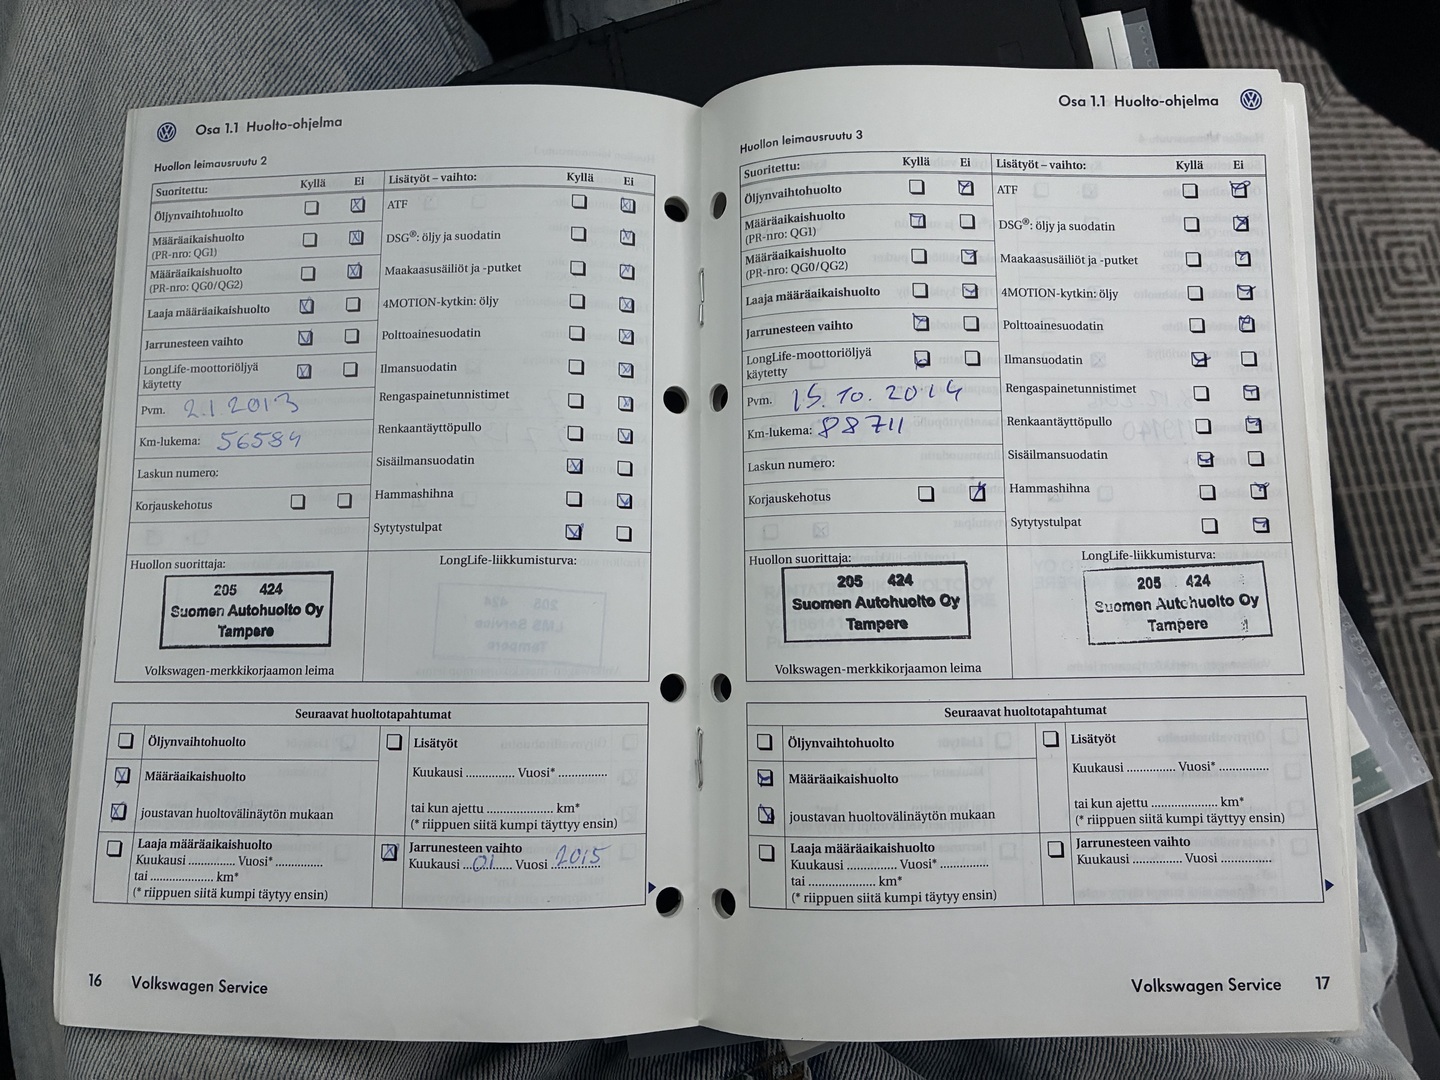 Osa 1.1 Huolto-ohjelma
Huollon leimausruutu 2
Suoritettu: Kyllä Ei
Öljynvaihtohuolto
Määräaikaishuolto
(PR-nro: QG1)
Määräaikaishuolto
(PR-nro: QG0/QG2)
Laaja määräaikaishuolto
Jarrunesteen vaihto
LongLife-moottoriöljyä
käytetty
Pvm. 2.1 2013
Km-lukema: 56584
Laskun numero:
Korjauskehotus
Lisätyöt – vaihto: Kyllä Ei
ATF
DSG®: öljy ja suodatin
Maakaasusäiliöt ja -putket
4MOTION-kytkin: öljy
Polttoainesuodatin
Ilmansuodatin
Rengaspainetunnistimet
Renkaantäyttöpullo
Sisäilmansuodatin
Hammashihna
Sytytystulpat
Huollon suorittaja:
205 424
Suomen Autohuolto Oy
Tampere
Volkswagen-merkkikorjaamon leima
LongLife-liikkumisturva:
Seuraavat huoltotapahtumat
Öljynvaihtohuolto
Määräaikaishuolto
joustavan huoltovälinäytön mukaan
Laaja määräaikaishuolto
Kuukausi .............. Vuosi* ..............
tai .................... km*
(* riippuen siitä kumpi täytyy ensin)
Lisätyöt
Kuukausi .............. Vuosi* ..............
tai kun ajettu .................... km*
(* riippuen siitä kumpi täyttyy ensin)
Jarrunesteen vaihto
Kuukausi ..01...... Vuosi 2015
16 Volkswagen Service
Osa 1.1 Huolto-ohjelma
Huollon leimausruutu 3
Suoritettu: Kyllä Ei
Öljynvaihtohuolto
Määräaikaishuolto
(PR-nro: QG1)
Määräaikaishuolto
(PR-nro: QG0/QG2)
Laaja määräaikaishuolto
Jarrunesteen vaihto
LongLife-moottoriöljyä
käytetty
Pvm. 15.10.2014
Km-lukema: 88711
Laskun numero:
Korjauskehotus
Lisätyöt – vaihto: Kyllä Ei
ATF
DSG®: öljy ja suodatin
Maakaasusäiliöt ja -putket
4MOTION-kytkin: öljy
Polttoainesuodatin
Ilmansuodatin
Rengaspainetunnistimet
Renkaantäyttöpullo
Sisäilmansuodatin
Hammashihna
Sytytystulpat
Huollon suorittaja:
205 424
Suomen Autohuolto Oy
Tampere
Volkswagen-merkkikorjaamon leima
LongLife-liikkumisturva:
205 424
Suomen Autohuolto Oy
Tampere
Seuraavat huoltotapahtumat
Öljynvaihtohuolto
Määräaikaishuolto
joustavan huoltovälinäytön mukaan
Laaja määräaikaishuolto
Kuukausi .............. Vuosi* ..............
tai .................... km*
(* riippuen siitä kumpi täytyy ensin)
Lisätyöt
Kuukausi .............. Vuosi* ..............
tai kun ajettu .................... km*
(* riippuen siitä kumpi täyttyy ensin)
Jarrunesteen vaihto
Kuukausi .............. Vuosi ..............
Volkswagen Service 17